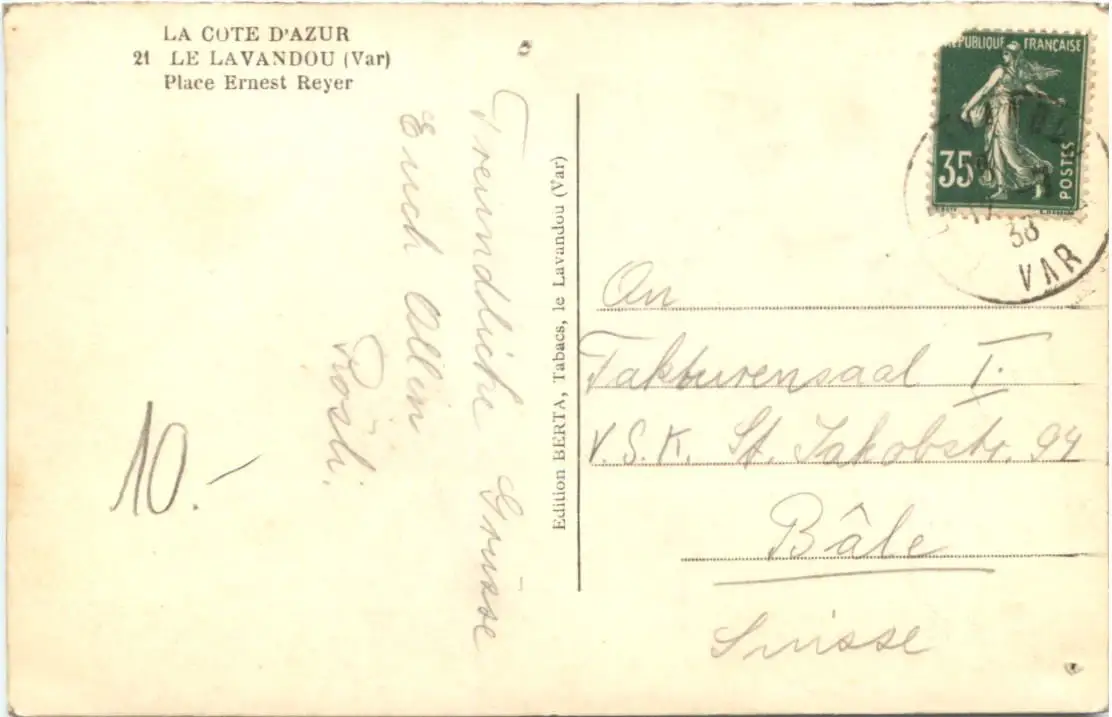 LA COTE D'AZUR
21 LE LAVANDOU (Var)
Place Ernest Reyer
Freundliche Grüsse
Euch Allen
Rösli.
10.-
Edition BERTA, Tabacs, le Lavandou (Var)
RÉPUBLIQUE FRANÇAISE
35c
POSTES
38
VAR
An
Fakturensaal I.
V.S.K. St. Jakobstr. 94
Bâle
Suisse